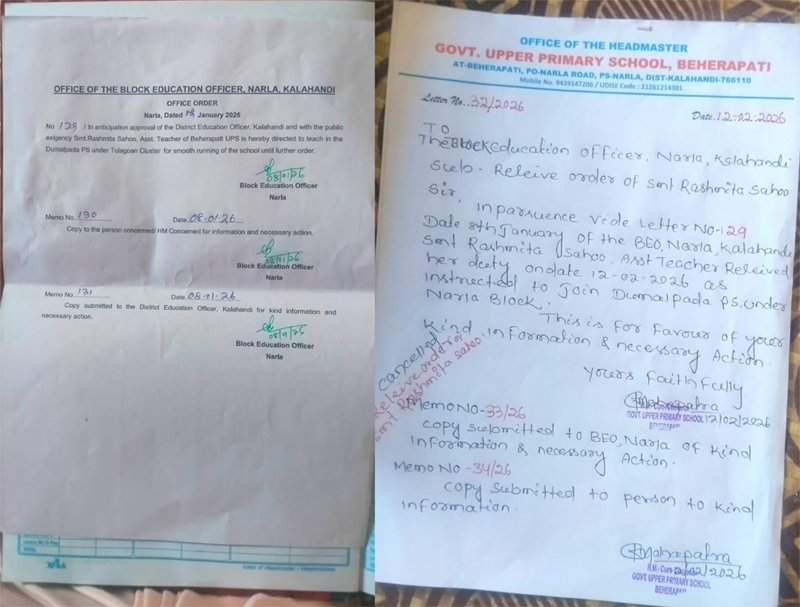 OFFICE OF THE BLOCK EDUCATION OFFICER, NARLA, KALAHANDI
OFFICE ORDER
Narla, Dated 8th January 2026
No 129 / In anticipation approval of the District Education Officer, Kalahandi and with the public
exigency Smt.Rashmita Sahoo, Asst. Teacher of Beherapati UPS is hereby directed to teach in the
Dumalpada PS under Tulagoan Cluster for smooth running of the school until further order.
08/01/26
Block Education Officer
Narla
Memo No. 130 Date 08-01-26
Copy to the person concerned/ HM Concerned for information and necessary action.
08/01/26
Block Education Officer
Narla
Memo No. 131 Date 08-01-26
Copy submitted to the District Education Officer, Kalahandi for kind information and
necessary action.
08/01/26
Block Education Officer
Narla
TOTAL
OFFICE OF THE HEADMASTER
GOVT. UPPER PRIMARY SCHOOL, BEHERAPATI
AT-BEHERAPATI, PO-NARLA ROAD, PS-NARLA, DIST-KALAHANDI-766110
Mobile No. 9439147206 / UDISE Code : 21261214301
Letter No. 32/2026
Date. 12-02-2026
TO
The Block education officer, Narla, Kalahandi
Sub- Releive order of Smt Rashmita Sahoo
Sir,
In parsuence vide Letter NO-129
Date 8th January of the BEO, Narla, Kalahandi
Smt Rashmita Sahoo. Asst Teacher Releived
her dcuty on date 12-02-2026 as
instructed to Join Dumalpada PS. under
Narla Block.
This is for favour of your
Kind information & necessary Action.
Cancelled
releive order for
Smt Rashmita Sahoo.
yours faithfully.
Mahapatra
GOVT. UPPER PRIMARY SCHOOL 12/02/2026
BEHERAPATI
Memo NO-33/26
Copy submitted to BEO, Narla of kind
information & necessary Action.
Memo No -34/26
Copy submitted to person to kind
information.
Mahapatra
12/02/2026
GOVT. UPPER PRIMARY SCHOOL
BEHERAPATI